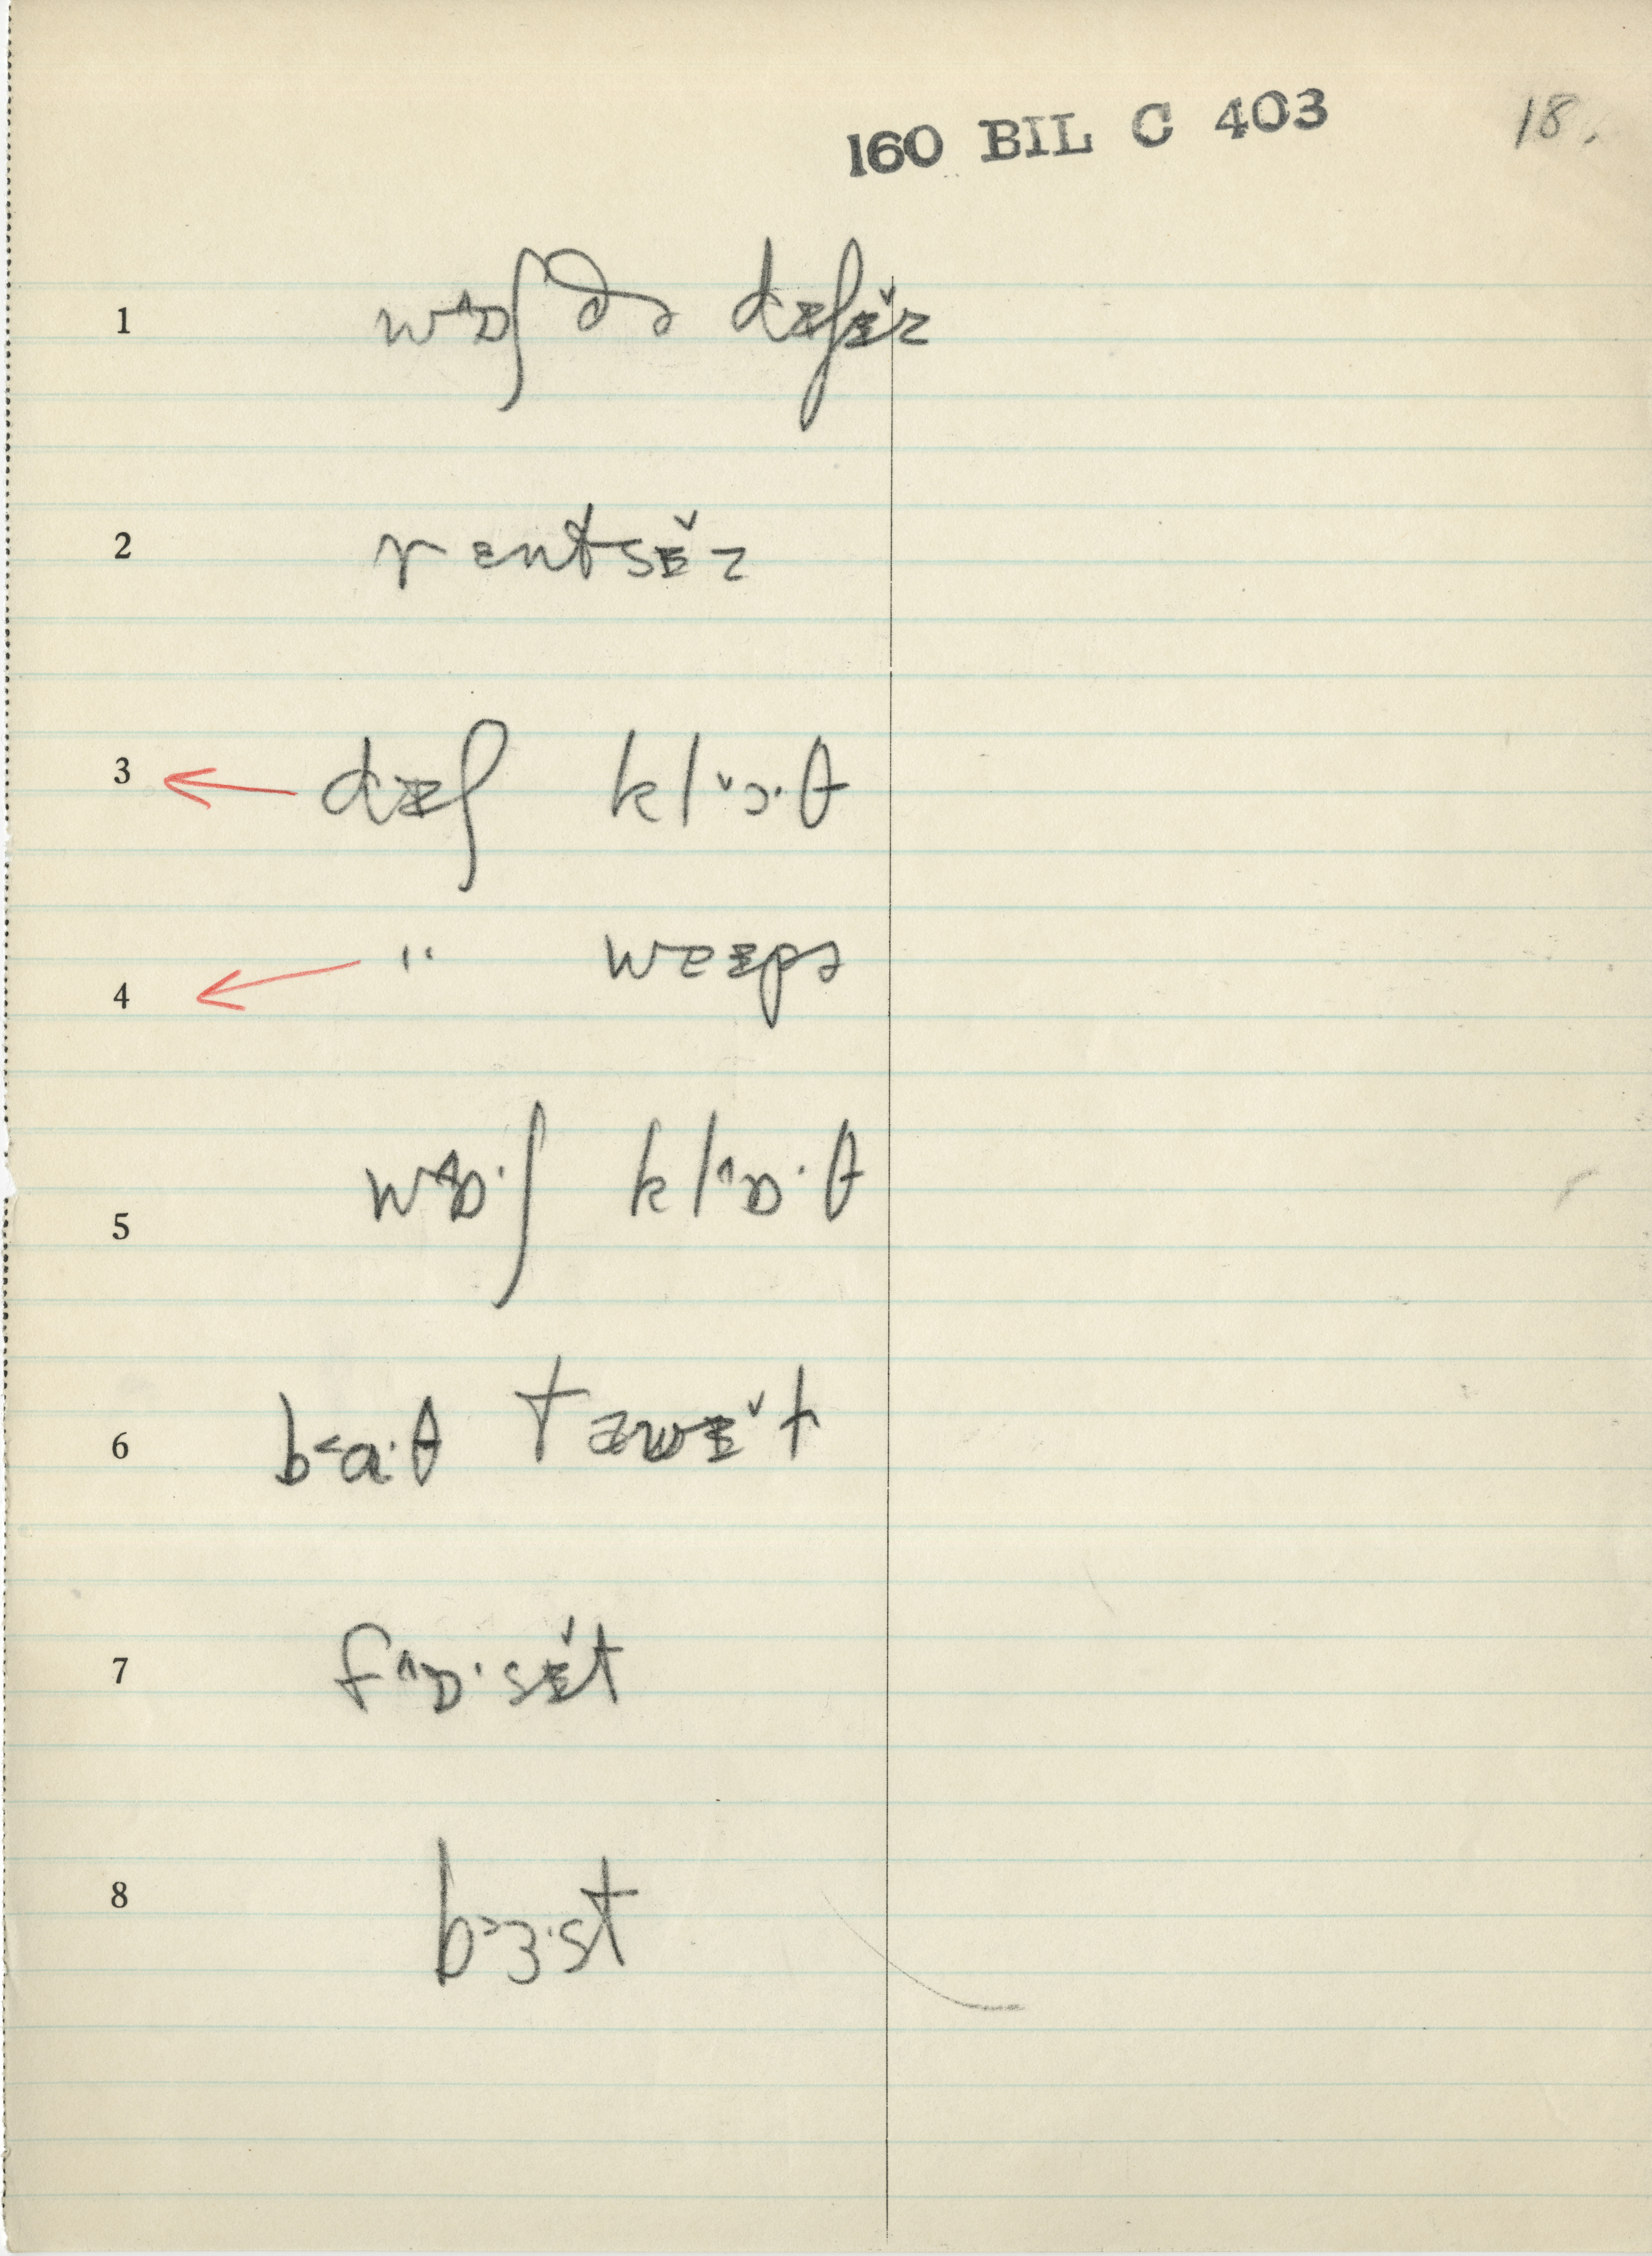 160 BIL C 403 18.
1 wɒ˄ʃ ðə dɪʃᵻ̌z
2 rɛntsᵻ̌z
3 dɪʃ klɔ˅·θ
4 " weɪpə
5 wɒ˄·ʃ klɒ˄·θ
6 ba˂·θ taʊᵻ̌t
7 fɒ˄·sᵻ̌t
8 bɜ˃·st